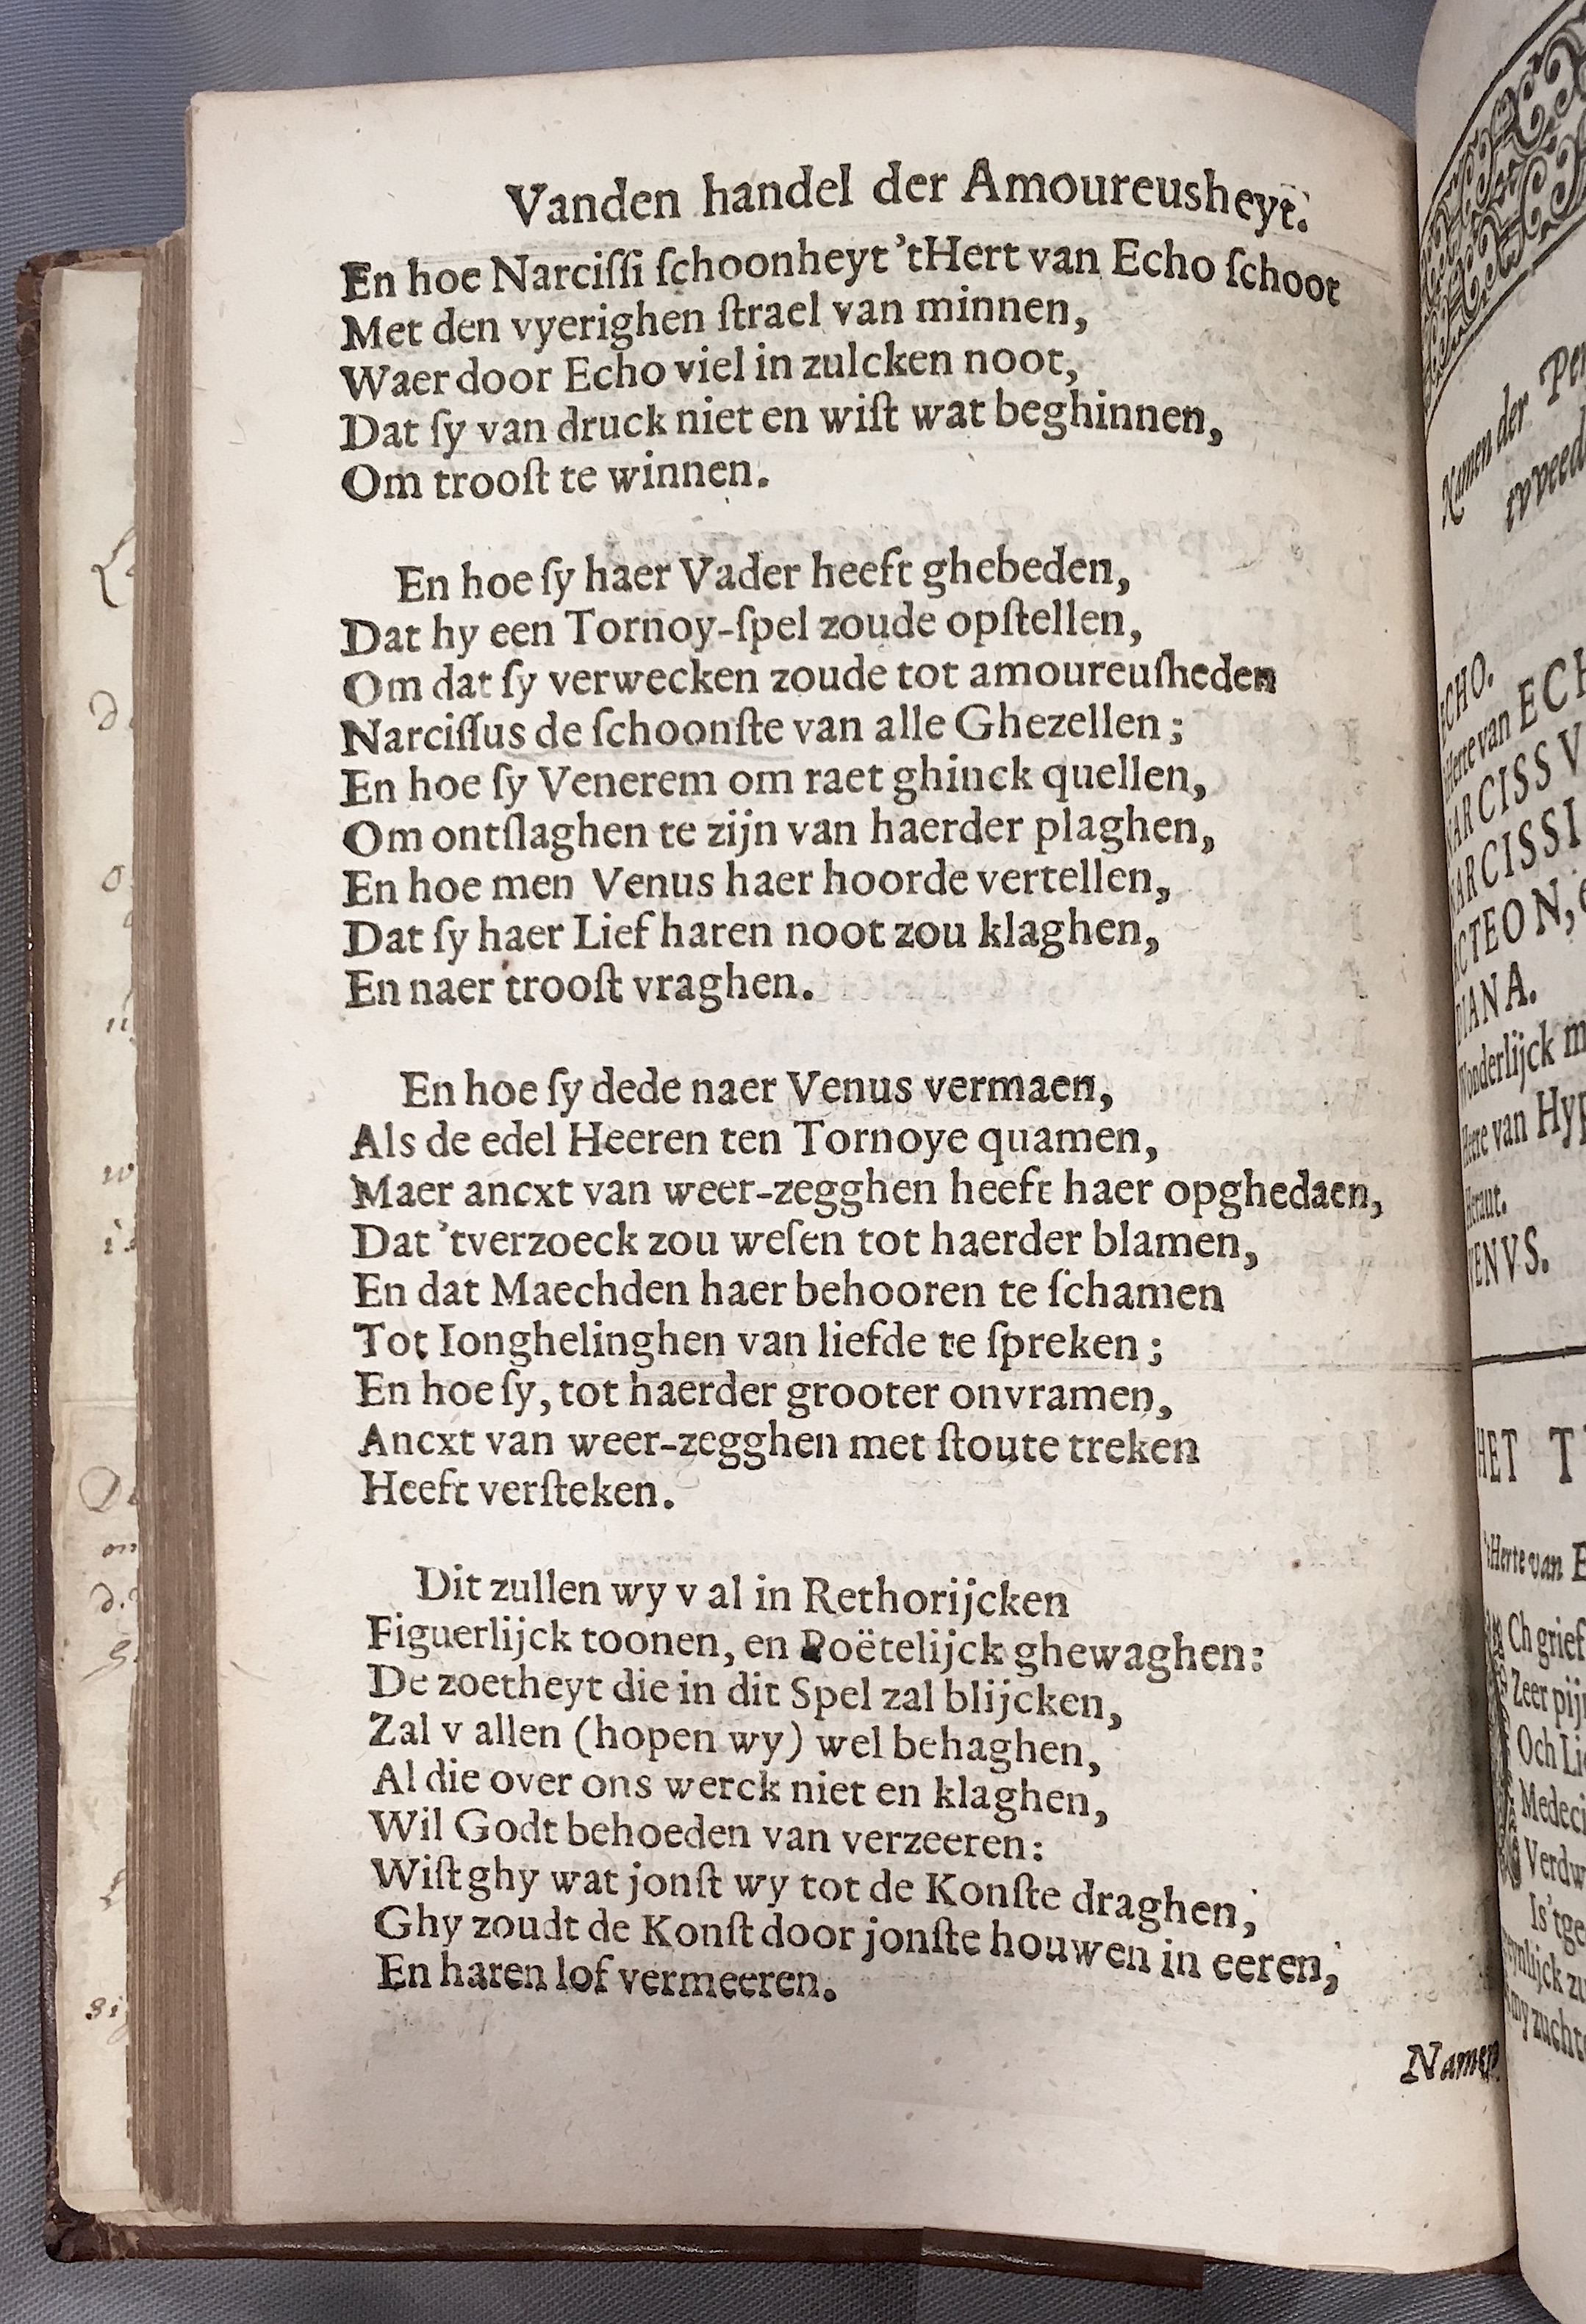 Vanden handel der Amoureusheyt.
En hoe Narciſſi ſchoonheyt 'tHert van Echo ſchoot
Met den vyerighen ſtrael van minnen,
Waer door Echo viel in zulcken noot,
Dat ſy van druck niet en wiſt wat beghinnen,
Om trooſt te winnen.
En hoe ſy haer Vader heeft ghebeden,
Dat hy een Tornoy-ſpel zoude opſtellen,
Om dat ſy verwecken zoude tot amoureuſheden
Narciſſus de ſchoonſte van alle Ghezellen;
En hoe ſy Venerem om raet ghinck quellen,
Om ontſlaghen te zijn van haerder plaghen,
En hoe men Venus haer hoorde vertellen,
Dat ſy haer Lief haren noot zou klaghen,
En naer trooſt vraghen.
En hoe ſy dede naer Venus vermaen,
Als de edel Heeren ten Tornoye quamen,
Maer ancxt van weer-zegghen heeft haer opghedaen,
Dat 'tverzoeck zou weſen tot haerder blamen,
En dat Maechden haer behooren te ſchamen
Tot Ionghelinghen van liefde te ſpreken;
En hoe ſy, tot haerder grooter onvramen,
Ancxt van weer-zegghen met ſtoute treken
Heeft verſteken.
Dit zullen wy v al in Rethorijcken
Figuerlijck toonen, en Poëtelijck ghewaghen:
De zoetheyt die in dit Spel zal blijcken,
Zal v allen (hopen wy) wel behaghen,
Al die over ons werck niet en klaghen,
Wil Godt behoeden van verzeeren:
Wiſt ghy wat jonſt wy tot de Konſte draghen,
Ghy zoudt de Konſt door jonſte houwen in eeren,
En haren lof vermeeren.
Namen
Namen der
ECHO.
Herte van
NARCISSV
NARCISSI
ACTEON,
DIANA.
Wonderlijck
Heere van
Heraut.
VENVS.
HET
'tHerte van
Ch grief
Zeer
Och
Is 'tge